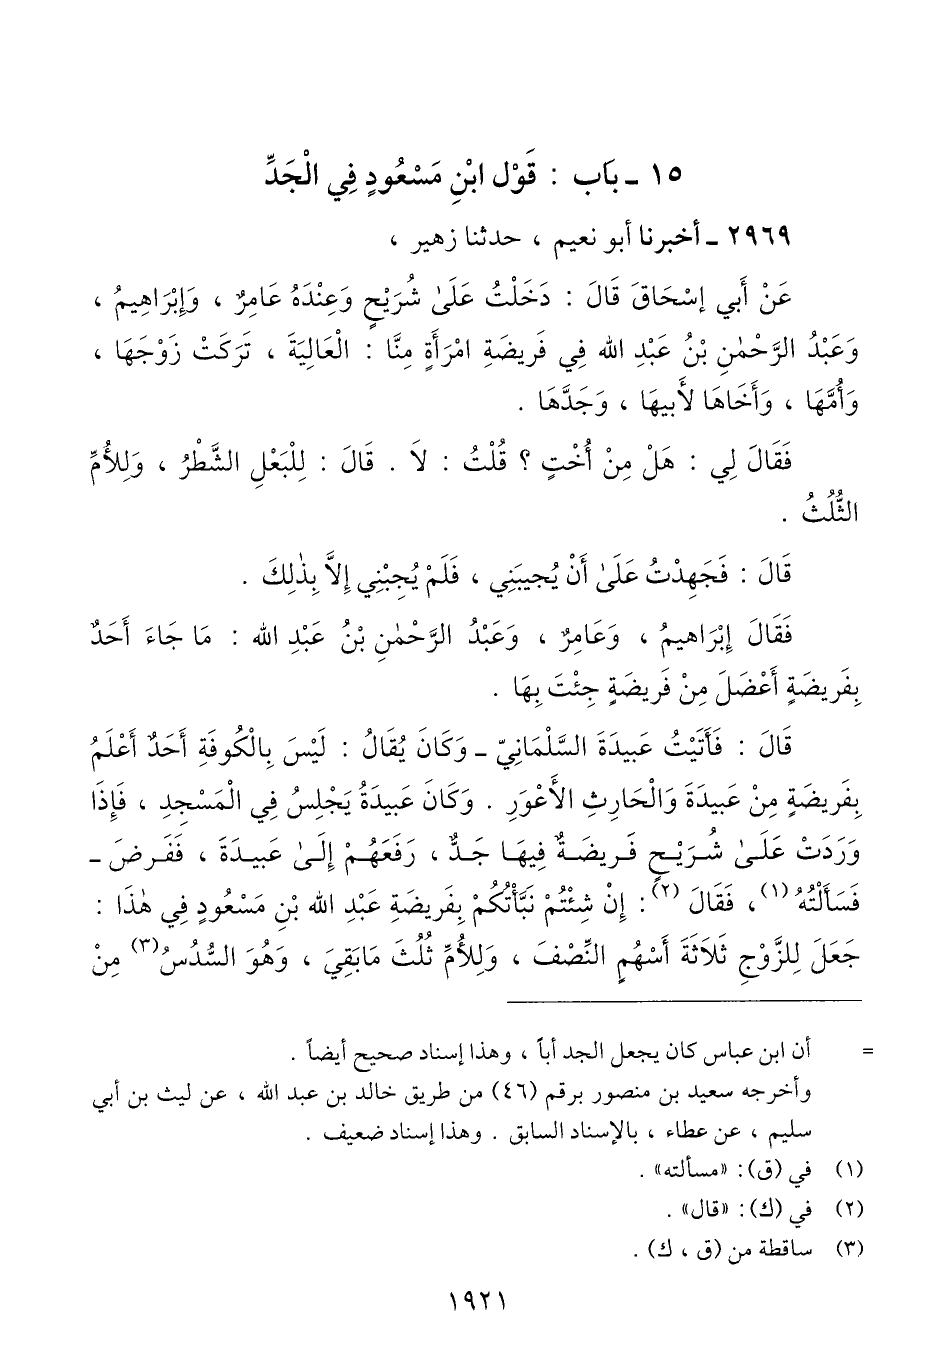 ١٥ ـ بَاب : قَوْل ابْنِ مَسْعُودٍ فِي الْجَدِّ
٢٩٦٩ ـ أخبرنا أبو نعيم ، حدثنا زهير ،
عَنْ أَبي إسْحَاقَ قَالَ : دَخَلْتُ عَلَىٰ شُرَيْحٍ وَعِنْدَهُ عَامِرٌ ، وَإِبْرَاهِيمُ ،
وَعَبْدُ الرَّحْمٰنِ بْنُ عَبْدِ الله فِي فَرِيضَةِ امْرَأَةٍ مِنَّا : الْعَالِيَةَ ، تَرَكَتْ زَوْجَهَا ،
وَأُمَّهَا ، وَأَخَاهَا لأَبيهَا ، وَجَدَّهَا .
فَقَالَ لِي : هَلْ مِنْ أُخْتٍ ؟ قُلْتُ : لاَ . قَالَ : لِلْبَعْلِ الشَّطْرُ ، وَلِلأُمِّ
الثُّلُثُ .
قَالَ : فَجَهِدْتُ عَلَىٰ أَنْ يُجيبَنِي ، فَلَمْ يُجِبْنِي إِلاَّ بِذٰلِكَ .
فَقَالَ إِبْرَاهيمُ ، وَعَامِرٌ ، وَعَبْدُ الرَّحْمٰنِ بْنُ عَبْدِ الله : مَا جَاءَ أَحَدٌ
بِفَرِيضَةٍ أَعْضَلَ مِنْ فَرِيضَةٍ جِئْتَ بِهَا .
قَالَ : فَأَتَيْتُ عَبِيدَةَ السَّلْمَانِيّ ـ وَكَانَ يُقَالُ : لَيْسَ بِالْكُوفَةِ أَحَدٌ أَعْلَمُ
بِفَرِيضَةٍ مِنْ عَبِيدَةَ وَالْحَارِثِ الأَعْوَرِ . وَكَانَ عَبِيدَةُ يَجْلِسُ فِي الْمَسْجِدِ ، فَإِذَا
وَرَدَتْ عَلَىٰ شُرَيْحٍ فَرِيضَةٌ فِيهَا جَدٌّ ، رَفَعَهُمْ إِلَىٰ عَبِيدَةَ ، فَفَرضَ ـ
فَسَأَلْتُهُ (١) ، فَقَالَ (٢) : إِنْ شِئْتُمْ نَبَّأْتُكُمْ بِفَرِيضَةِ عَبْدِ الله بْنِ مَسْعُودٍ فِي هٰذَا :
جَعَلَ لِلزَّوْجِ ثَلاَثَةَ أَسْهُمٍ النِّصْفَ ، وَلِلأُمِّ ثُلُثَ مَابَقِيَ ، وَهُوَ السُّدُسُ (٣) مِنْ
= أن ابن عباس كان يجعل الجد أباً ، وهذا إسناد صحيح أيضاً .
وأخرجه سعيد بن منصور برقم (٤٦) من طريق خالد بن عبد الله ، عن ليث بن أبي
سليم ، عن عطاء ، بالإسناد السابق . وهذا إسناد ضعيف .
(١) في (ق) : «مسألته» .
(٢) في (ك) : «قال» .
(٣) ساقطة من (ق ، ك) .
١٩٢١